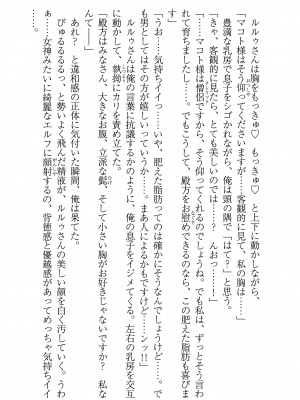 ルルゥさんは胸をもっきゅ♡　もっきゅ♡　と上下に動かしながら、
「マコト様は仰ってくださいますが……客観的に見て、私の胸は……」
豊満な乳房で息子をシゴかれながら、俺は頭の隅で「はて？」と思う。
「さきゃ、客観的に見たら、とても美しいのでは……？　んおっ……」
「マコト様は僧侶ですから、そう仰ってくれるのでしょうね。でも私は、ずっとそう言わ
れて育ちましたし……。でもこうして、殿方をお慰めできるのなら、この肥えた脂肪も喜びま
す……」
「うお……気持ちイイッ……いや、肥えた脂肪ってのは確かにそうなんでしょうけど……。で
も男としてはその方が嬉しいっていうか……。まあ人によるかもですけど……ンッ!!」
ルルゥさんは俺の言葉に抗議するかのように、俺の息子をイジメてくる。左右の乳房を交互
に動かして、執拗にカリを責め立てた。
「殿方はみなさん、大きなお腹、立派な髭。そして小さい胸がお好きじゃないですか？　私な
んて――」
あれ？　と違和感の正体に気付いた瞬間、俺は果てた。
びゅるるるるっ、と勢いよく飛んだ精液が、ルルゥさんの美しい顔を白く汚していく。うわ
ぁ……女神みたいに綺麗なエルフに顔射するの、背徳感と優越感があってめっちゃ気持ちイイ